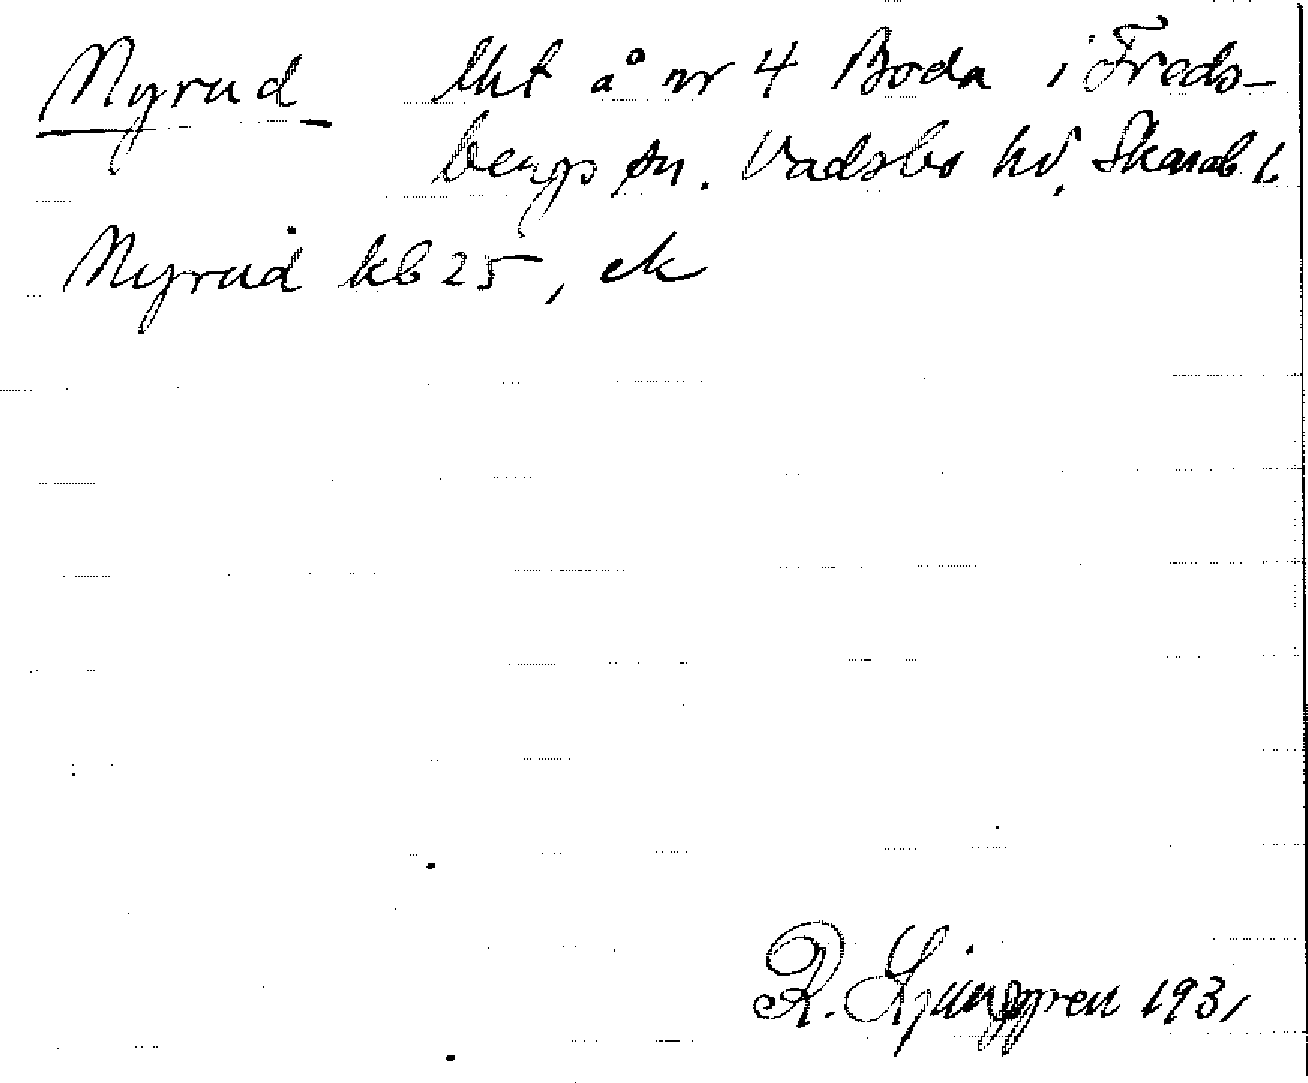 Nyrud lht å nr 4 Boda i Freds-
bergs sn. Vadsbo hd, Skarab. l.
Nyrud kb 25, ek
R. Ljunggren 1931